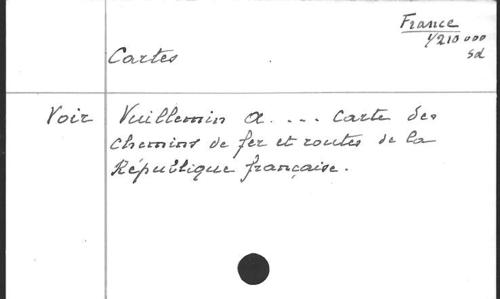 France
1/210 000
sd
Cartes
Voir Vuillemin A. ... Carte des
chemins de fer et routes de la
République française.